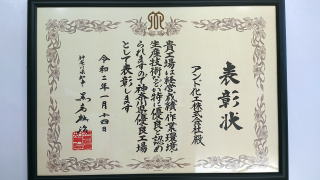 表彰状
アンド化工株式会社殿
貴工場は経営成績、作業環境
生産技術などが特に優良と認め
られますので神奈川県優良工場
として表彰します
令和二年一月十四日
神奈川県知事 黒岩祐治